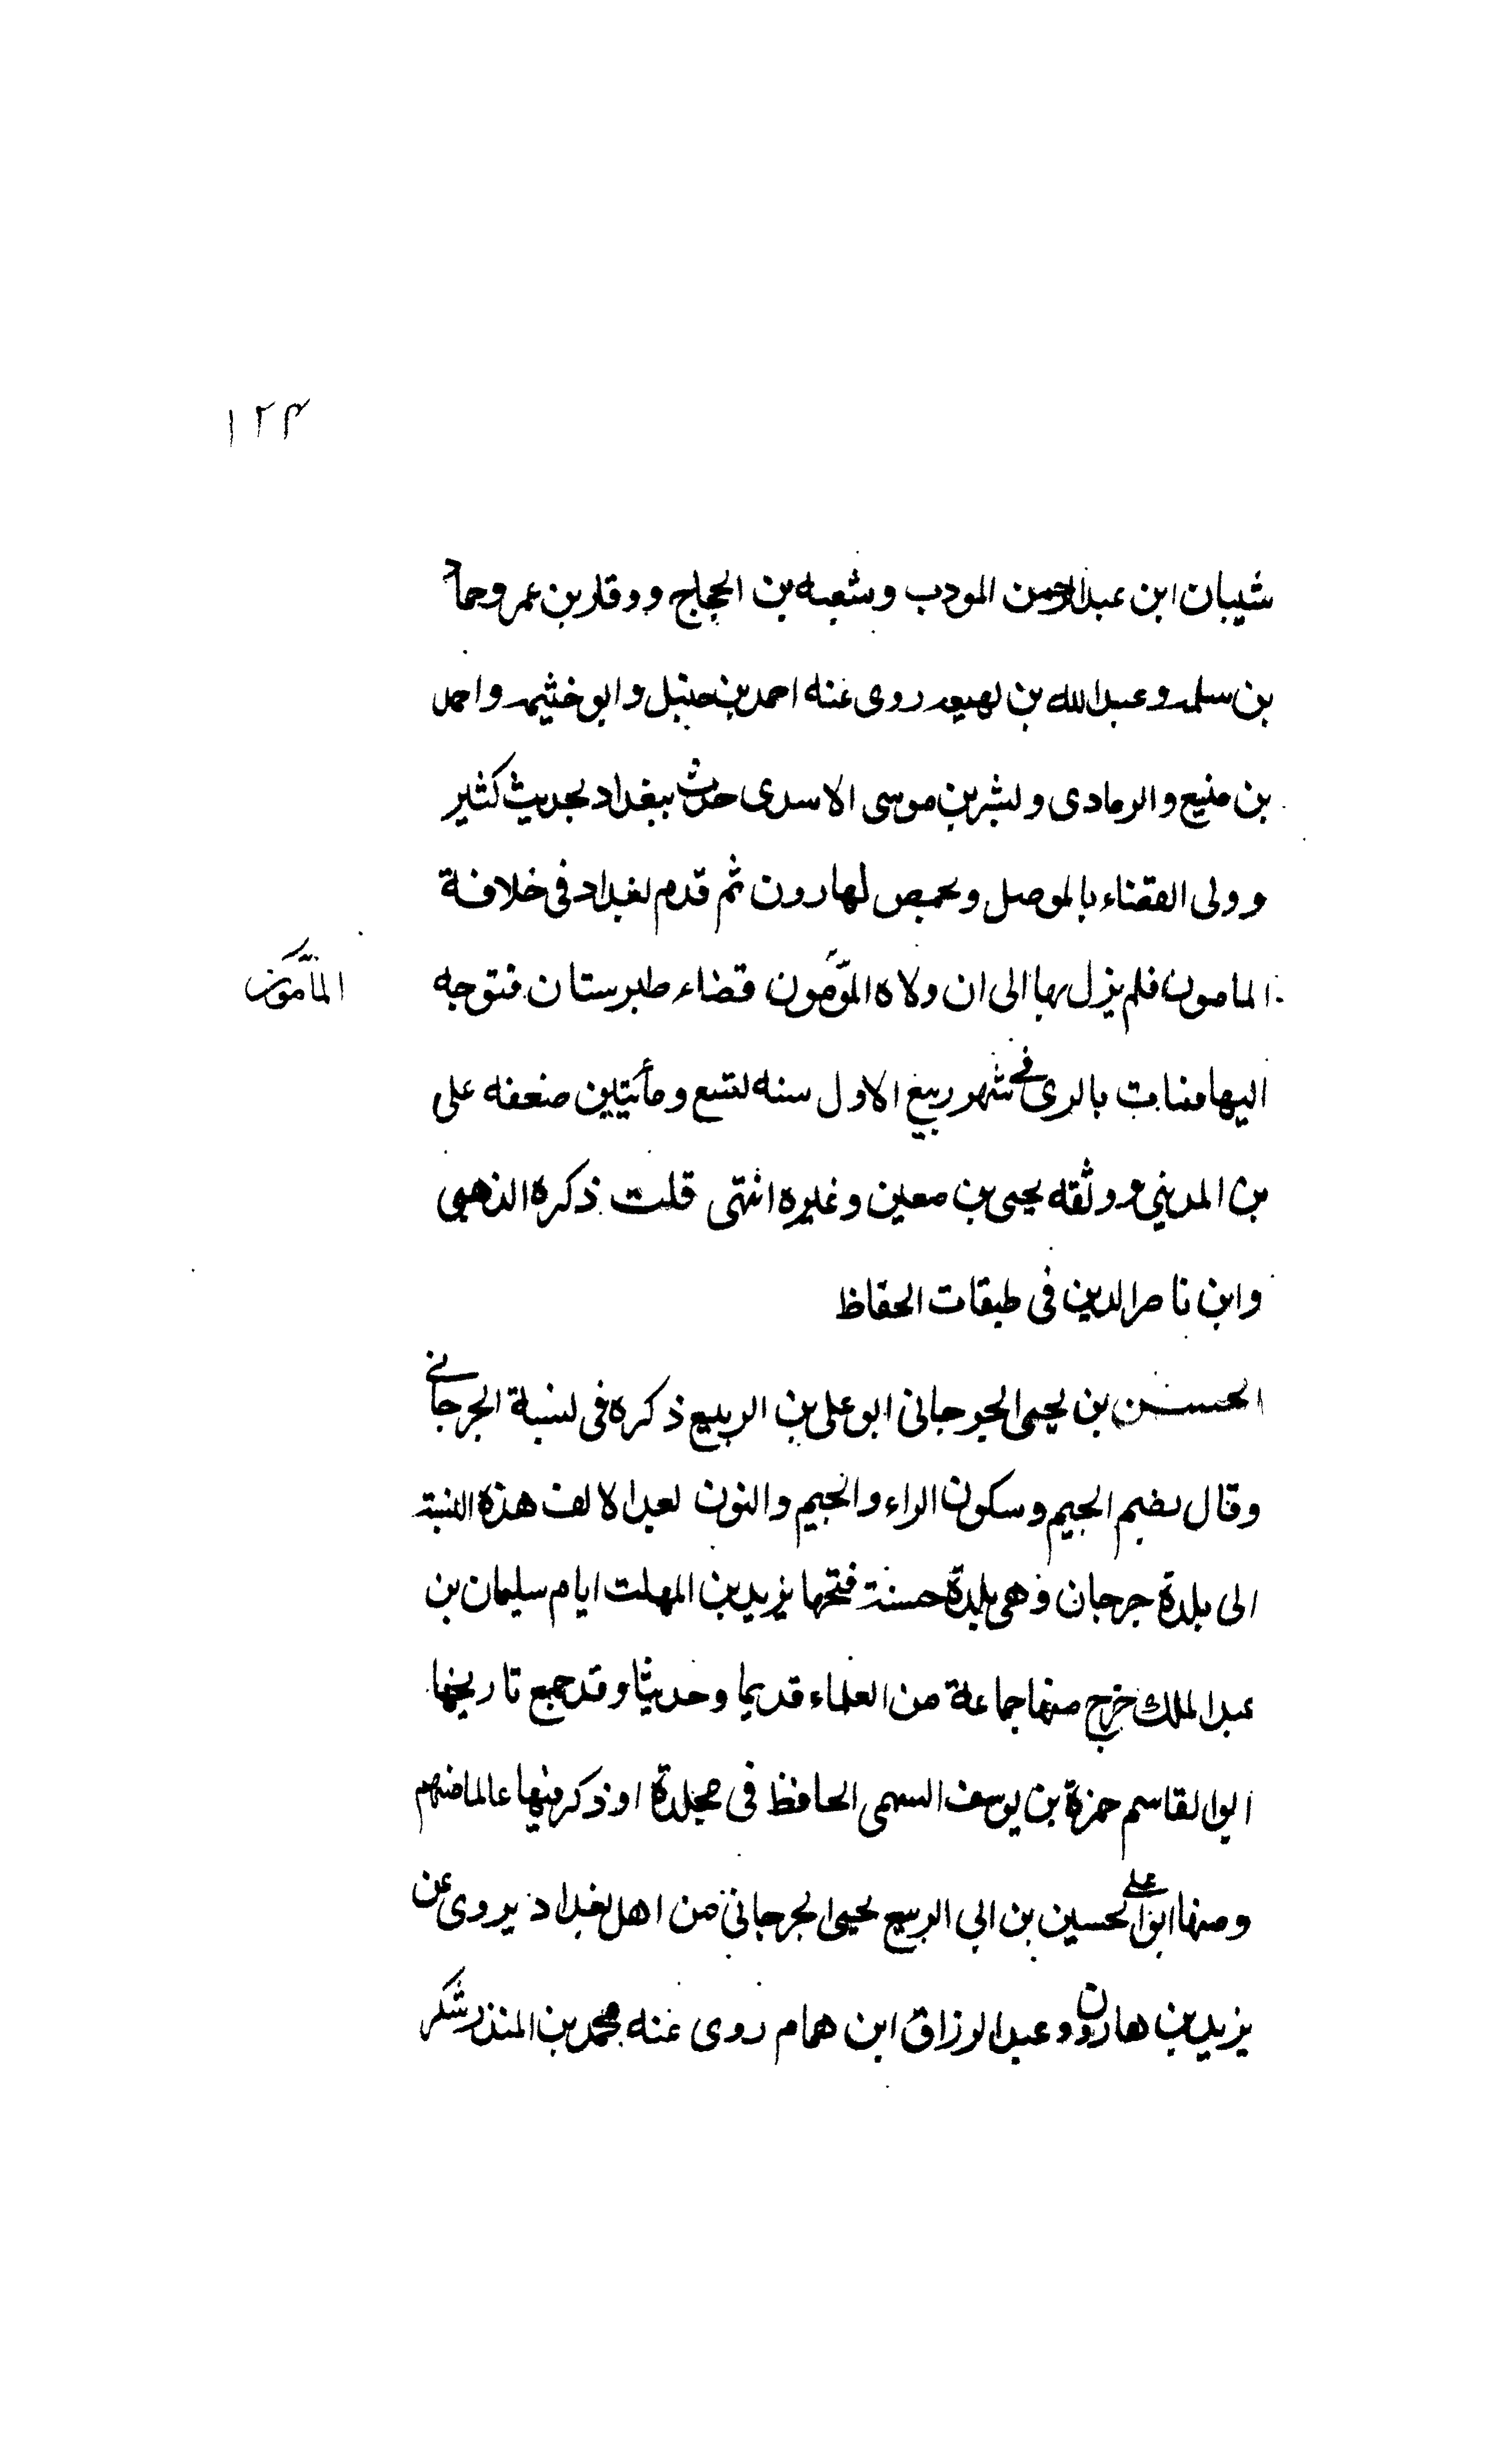 ١٢٤
شيبان ابن عبدالرحمن المودب وشعبه بن الحجاج وورقار بن عمر وحماد
بن سلمه وعبدالله بن لهيعه روى عنه احمد بن حنبل وابو خثيمه واحمد
بن منيع والرمادى وبشر بن موسى الاسدى حدث ببغداد بحديث كثير
وولى القضاء بالموصل وبحمص لهارون ثم قدم بغداد فى خلافة
المامون فلم يزل بها الى ان ولاه المؤمون قضاء طبرستان فتوجه
المأمون
اليها فمات بالرى فى شهر ربيع الاول سنه تسع ومأئتين ضعفه على
بن المدينى ووثقه يحيى بن معين وغيره انتهى قلت ذكره الذهبى
وابن ناصر الدين فى طبقات الحفاظ
الحسن بن يحيى الجرجانى ابو على بن الربيع ذكره فى نسبة الجرجانى
وقال بضم الجيم وسكون الراء والجيم والنون بعد الالف هذه النسبة
الى بلدة جرجان وهى بلدة حسنة فتحها يزيد بن المهلت ايام سليمان بن
عبد الملك خرج منها جماعة من العلماء قديما وحديثا وقد جمع تاريخها
ابوالقاسم حمزة بن يوسف السهمى الحافظ فى مجلدة اوذكر فيها عالما منهم
ومنها ابو على الحسين بن ابى الربيع يحيى الجرجانى من اهل بغداد يروى عن
يزيد بن هارون وعبدالرزاق ابن همام روى عنه محمد بن المنذر شكر